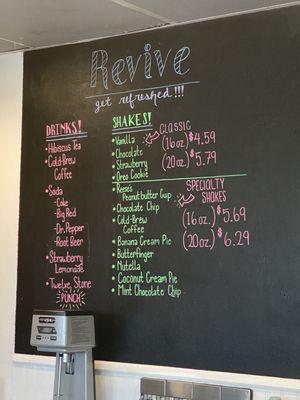 Revive
get refreshed!!!
DRINKS!
• Hibiscus Tea
• Cold-Brew
Coffee
• Soda
- Coke
- Big Red
- Dr. Pepper
- Root Beer
• Strawberry
Lemonade
• Twelve, Stone
PUNCH
SHAKES!
• Vanilla
• Chocolate
• Strawberry
• Oreo Cookie
CLASSIC
(16oz) $4.59
(20oz) $5.79
• Reese's
Peanutbutter Cup
• Chocolate Chip
• Cold-Brew
Coffee
• Banana Cream Pie
• Butterfinger
• Nutella
• Coconut Cream Pie
• Mint Chocolate Chip
SPECIALTY
SHAKES
(16oz) $5.69
(20oz) $6.29